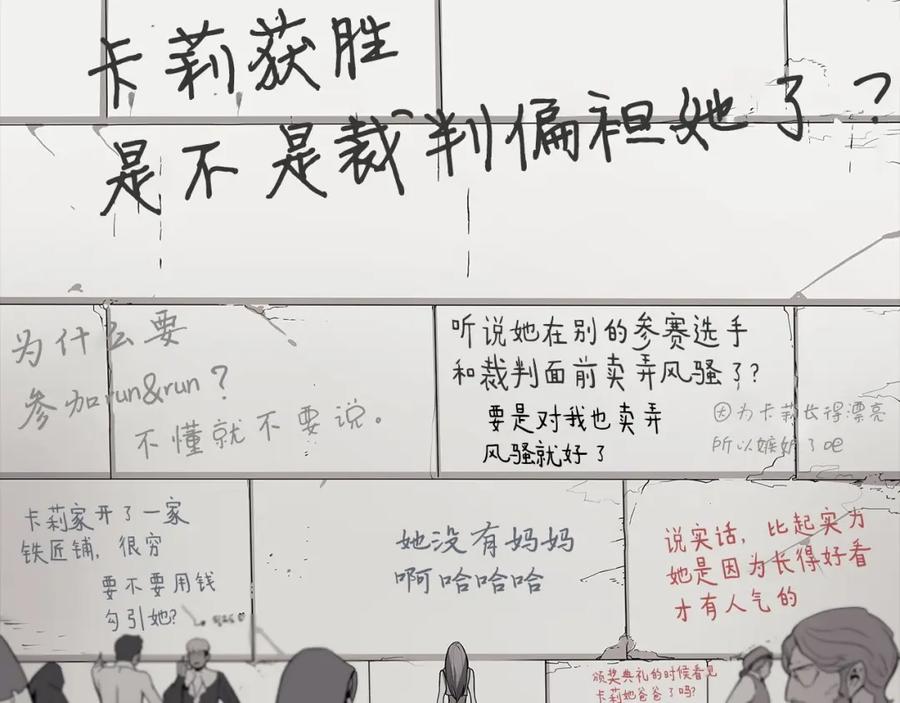 卡莉获胜
是不是裁判偏袒她了？
为什么要
参加run&run？
不懂就不要说。
听说她在别的参赛选手
和裁判面前卖弄风骚了？
要是对我也卖弄
风骚就好了
因为卡莉长得漂亮
所以嫉妒了吧
卡莉家开了一家
铁匠铺，很穷
要不要用钱
勾引她？
她没有妈妈
啊哈哈哈哈
说实话，比起实力
她是因为长得好看
才有人气的
颁奖典礼的时候看见
卡莉她爸爸了吗？